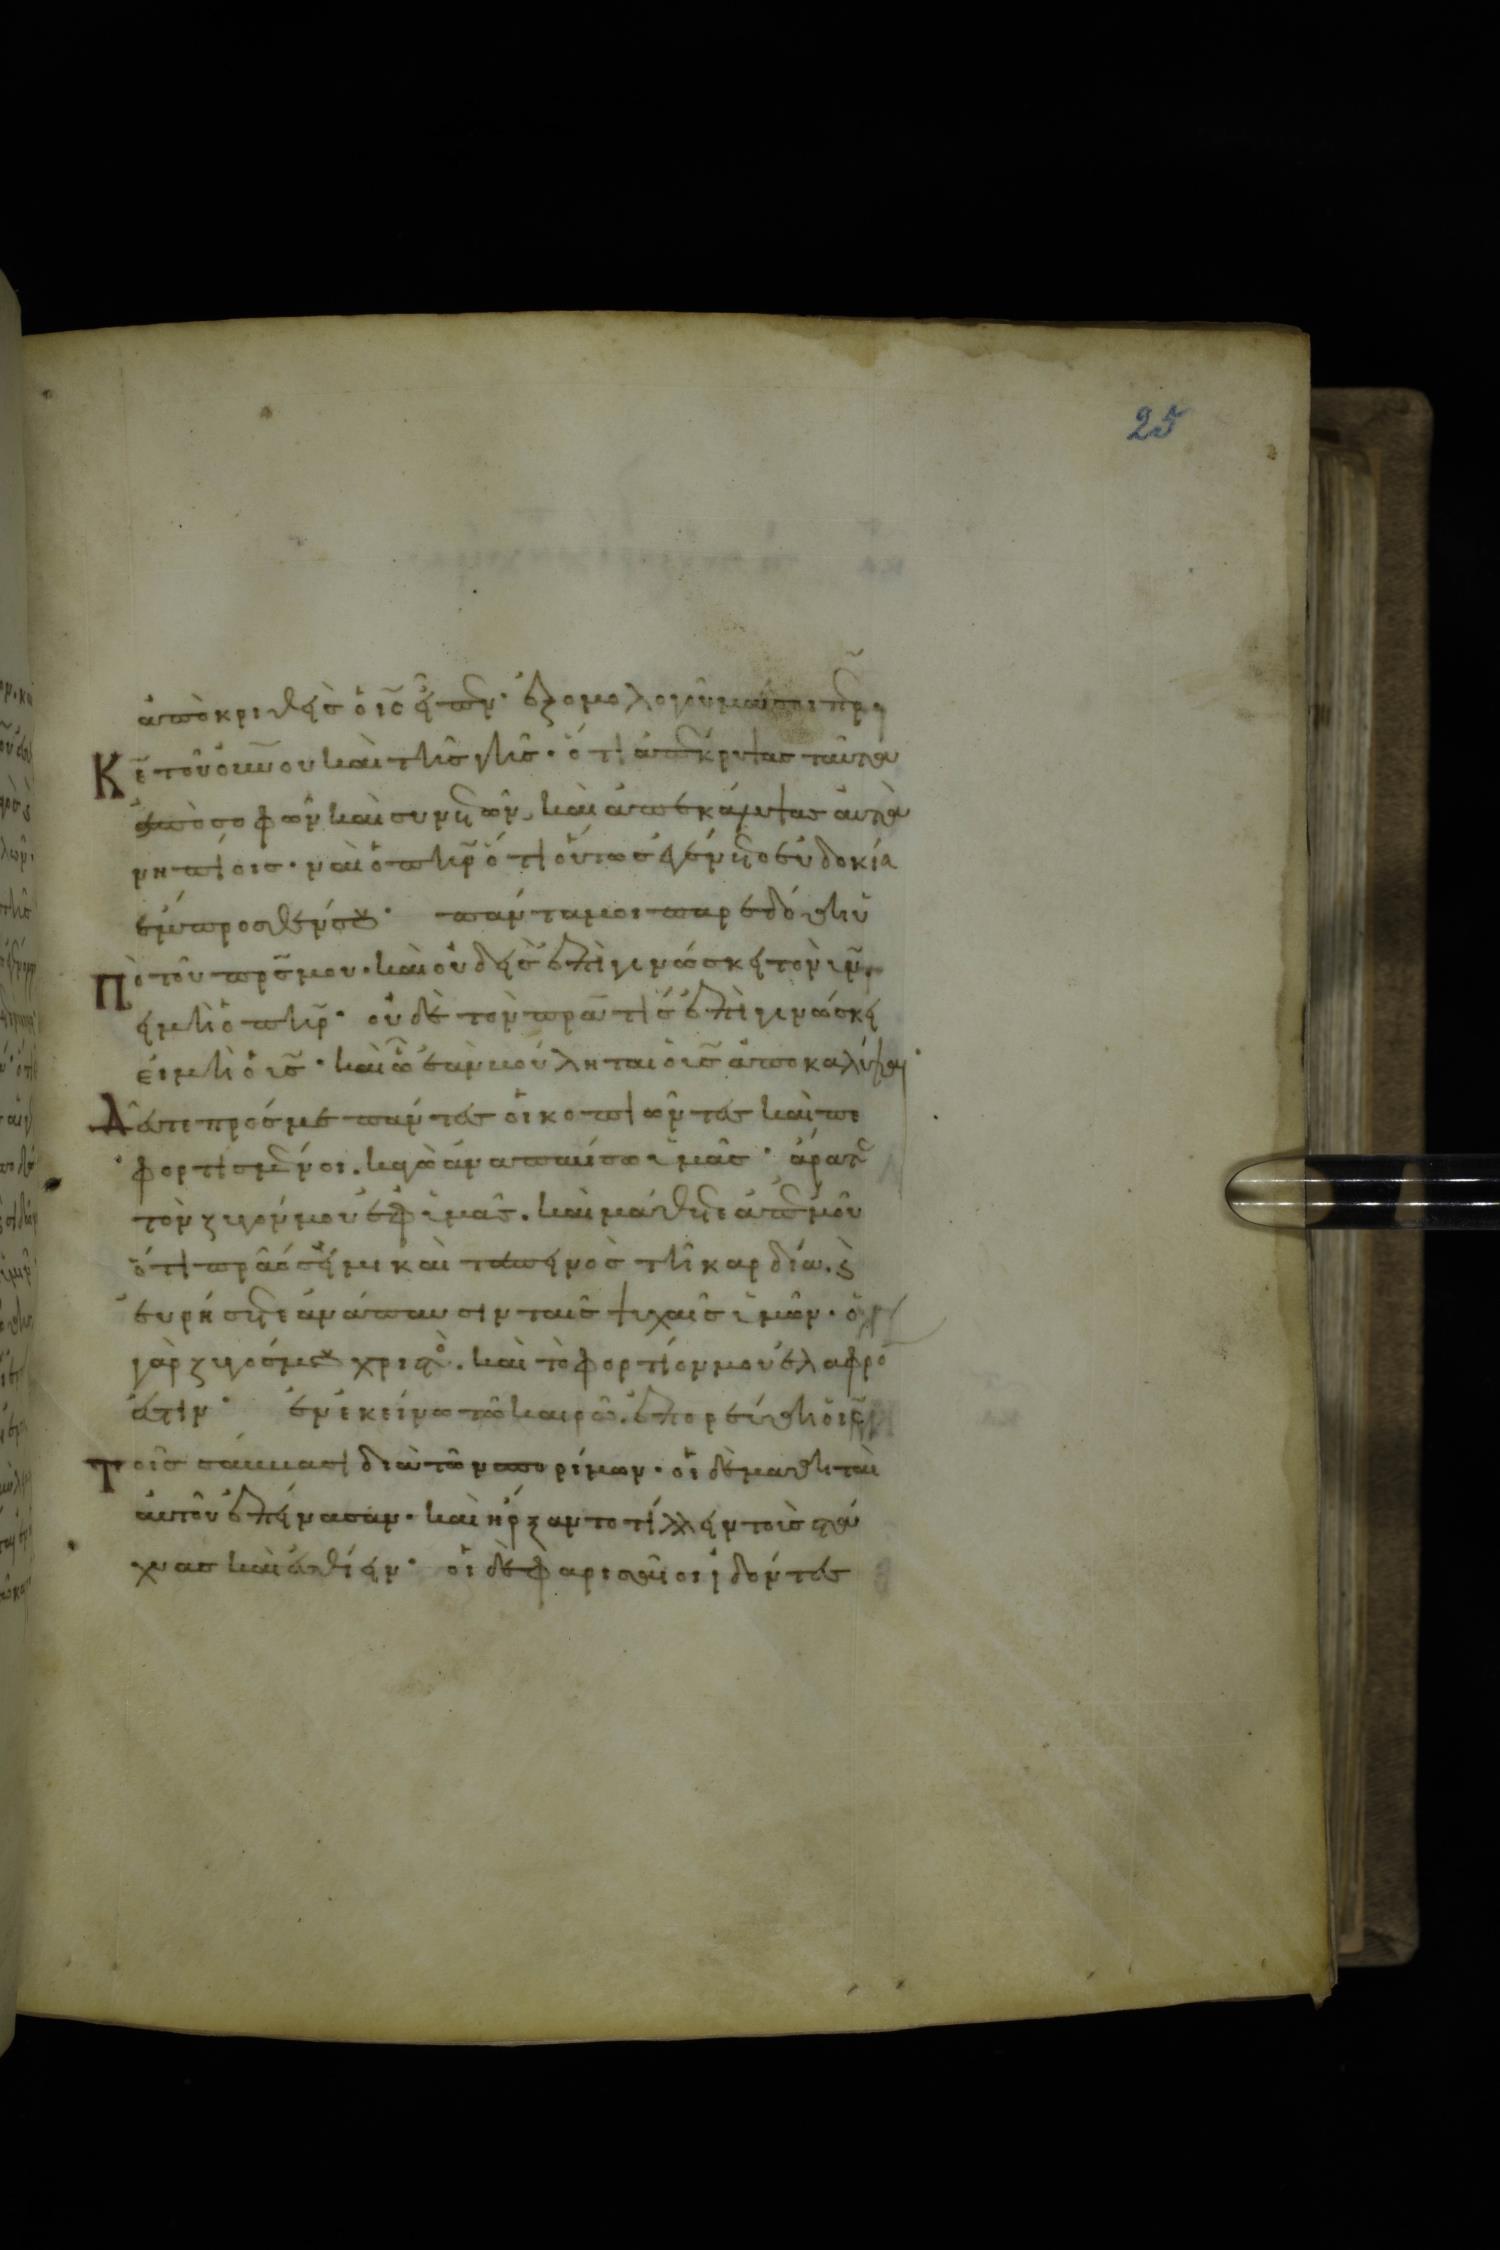 25
ἀποκριθεὶς ὁ ις εἶπεν· ἐξομολογοῦμαί σοι περ
κε τοῦ οὐνου καὶ τῆς γῆς· ὅτι ἀπέκρυψας ταῦτα
ἀπὸ σοφῶν καὶ συνετῶν, καὶ ἀπεκάλυψας αὐτὰ
νηπίοις· ναὶ ὁ πηρ ὅτι οὕτως ἐγένετο εὐδοκία
ἔμπροσθέν σου· πάντα μοι παρεδόθη ὑ
πὸ τοῦ πρς μου· καὶ οὐδεὶς ἐπιγινώσκει τὸν υν
εἰ μὴ ὁ πηρ· οὐδὲ τὸν πρα τὶς ἐπιγινώσκει
εἰ μὴ ὁ υς· καὶ ὧ ἐὰν βούληται ὁ υς ἀποκαλύψαι·
Δεῦτε πρός με πάντες οἱ κοπιῶντες καὶ πε
φορτισμένοι. καγὼ ἀναπαύσω ὑμᾶς· ἄρατε
τὸν ζυγόν μου ἐφ ὑμᾶς. καὶ μάθετε ἀπ ἐμοῦ
ὅτι πρᾶός εἰμι καὶ ταπεινὸς τῆ καρδία. ϗ
εὑρήσετε ἀνάπαυσιν ταῖς ψυχαῖς ὑμῶν· ὁ
γὰρ ζυγός μου χριστὸς. καὶ τὸ φορτίον μου ἐλαφρό
ἐστιν· ἐν ἐκείνω τῶ καιρῶ. ἐπορεύθη ὁ ις
τοῖς σάββασι διὰ τῶν σπορίμων· οἱ δὲ μαθηταὶ
αὐτοῦ ἐπείνασαν· καὶ ἤρξαντο τίλλειν τοὺς στά
χυας καὶ ἐσθίειν· οἱ δὲ φαρισαῖοι ἰδόντες